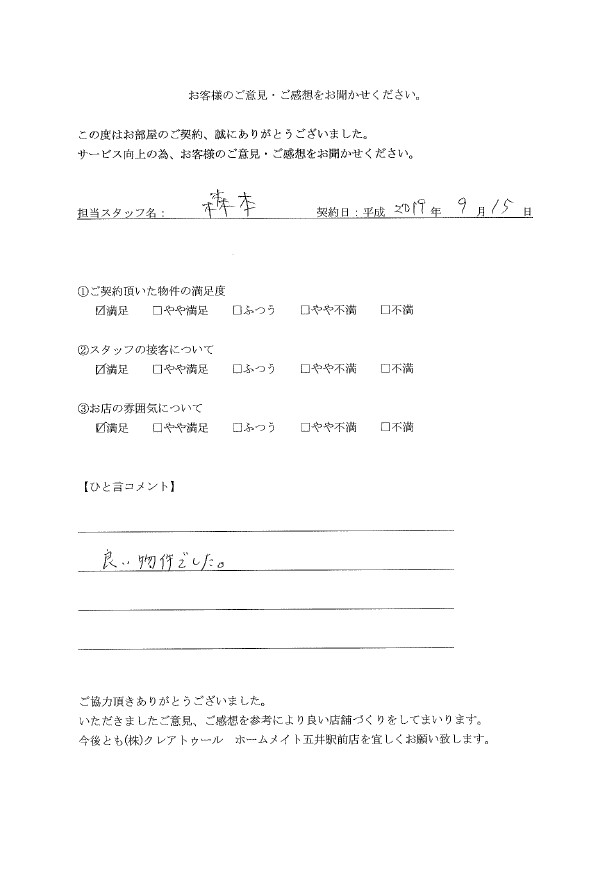 お客様のご意見・ご感想をお聞かせください。
この度はお部屋のご契約、誠にありがとうございました。
サービス向上の為、お客様のご意見・ご感想をお聞かせください。
担当スタッフ名： 森本 契約日：平成 2019 年 9 月 15 日
①ご契約頂いた物件の満足度
☑満足 □やや満足 □ふつう □やや不満 □不満
②スタッフの接客について
☑満足 □やや満足 □ふつう □やや不満 □不満
③お店の雰囲気について
☑満足 □やや満足 □ふつう □やや不満 □不満
【ひと言コメント】
良い物件でした。
ご協力頂きありがとうございました。
いただきましたご意見、ご感想を参考により良い店舗づくりをしてまいります。
今後とも(株)クレアトゥール　ホームメイト五井駅前店を宜しくお願い致します。